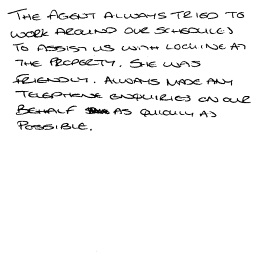 THE AGENT ALWAYS TRIED TO
WORK AROUND OUR SCHEDULES
TO ASSIST US WITH LOOKING AT
THE PROPERTY. SHE WAS
FRIENDLY. ALWAYS MADE ANY
TELEPHONE ENQUIRIES ON OUR
BEHALF AS QUICKLY AS
POSSIBLE.